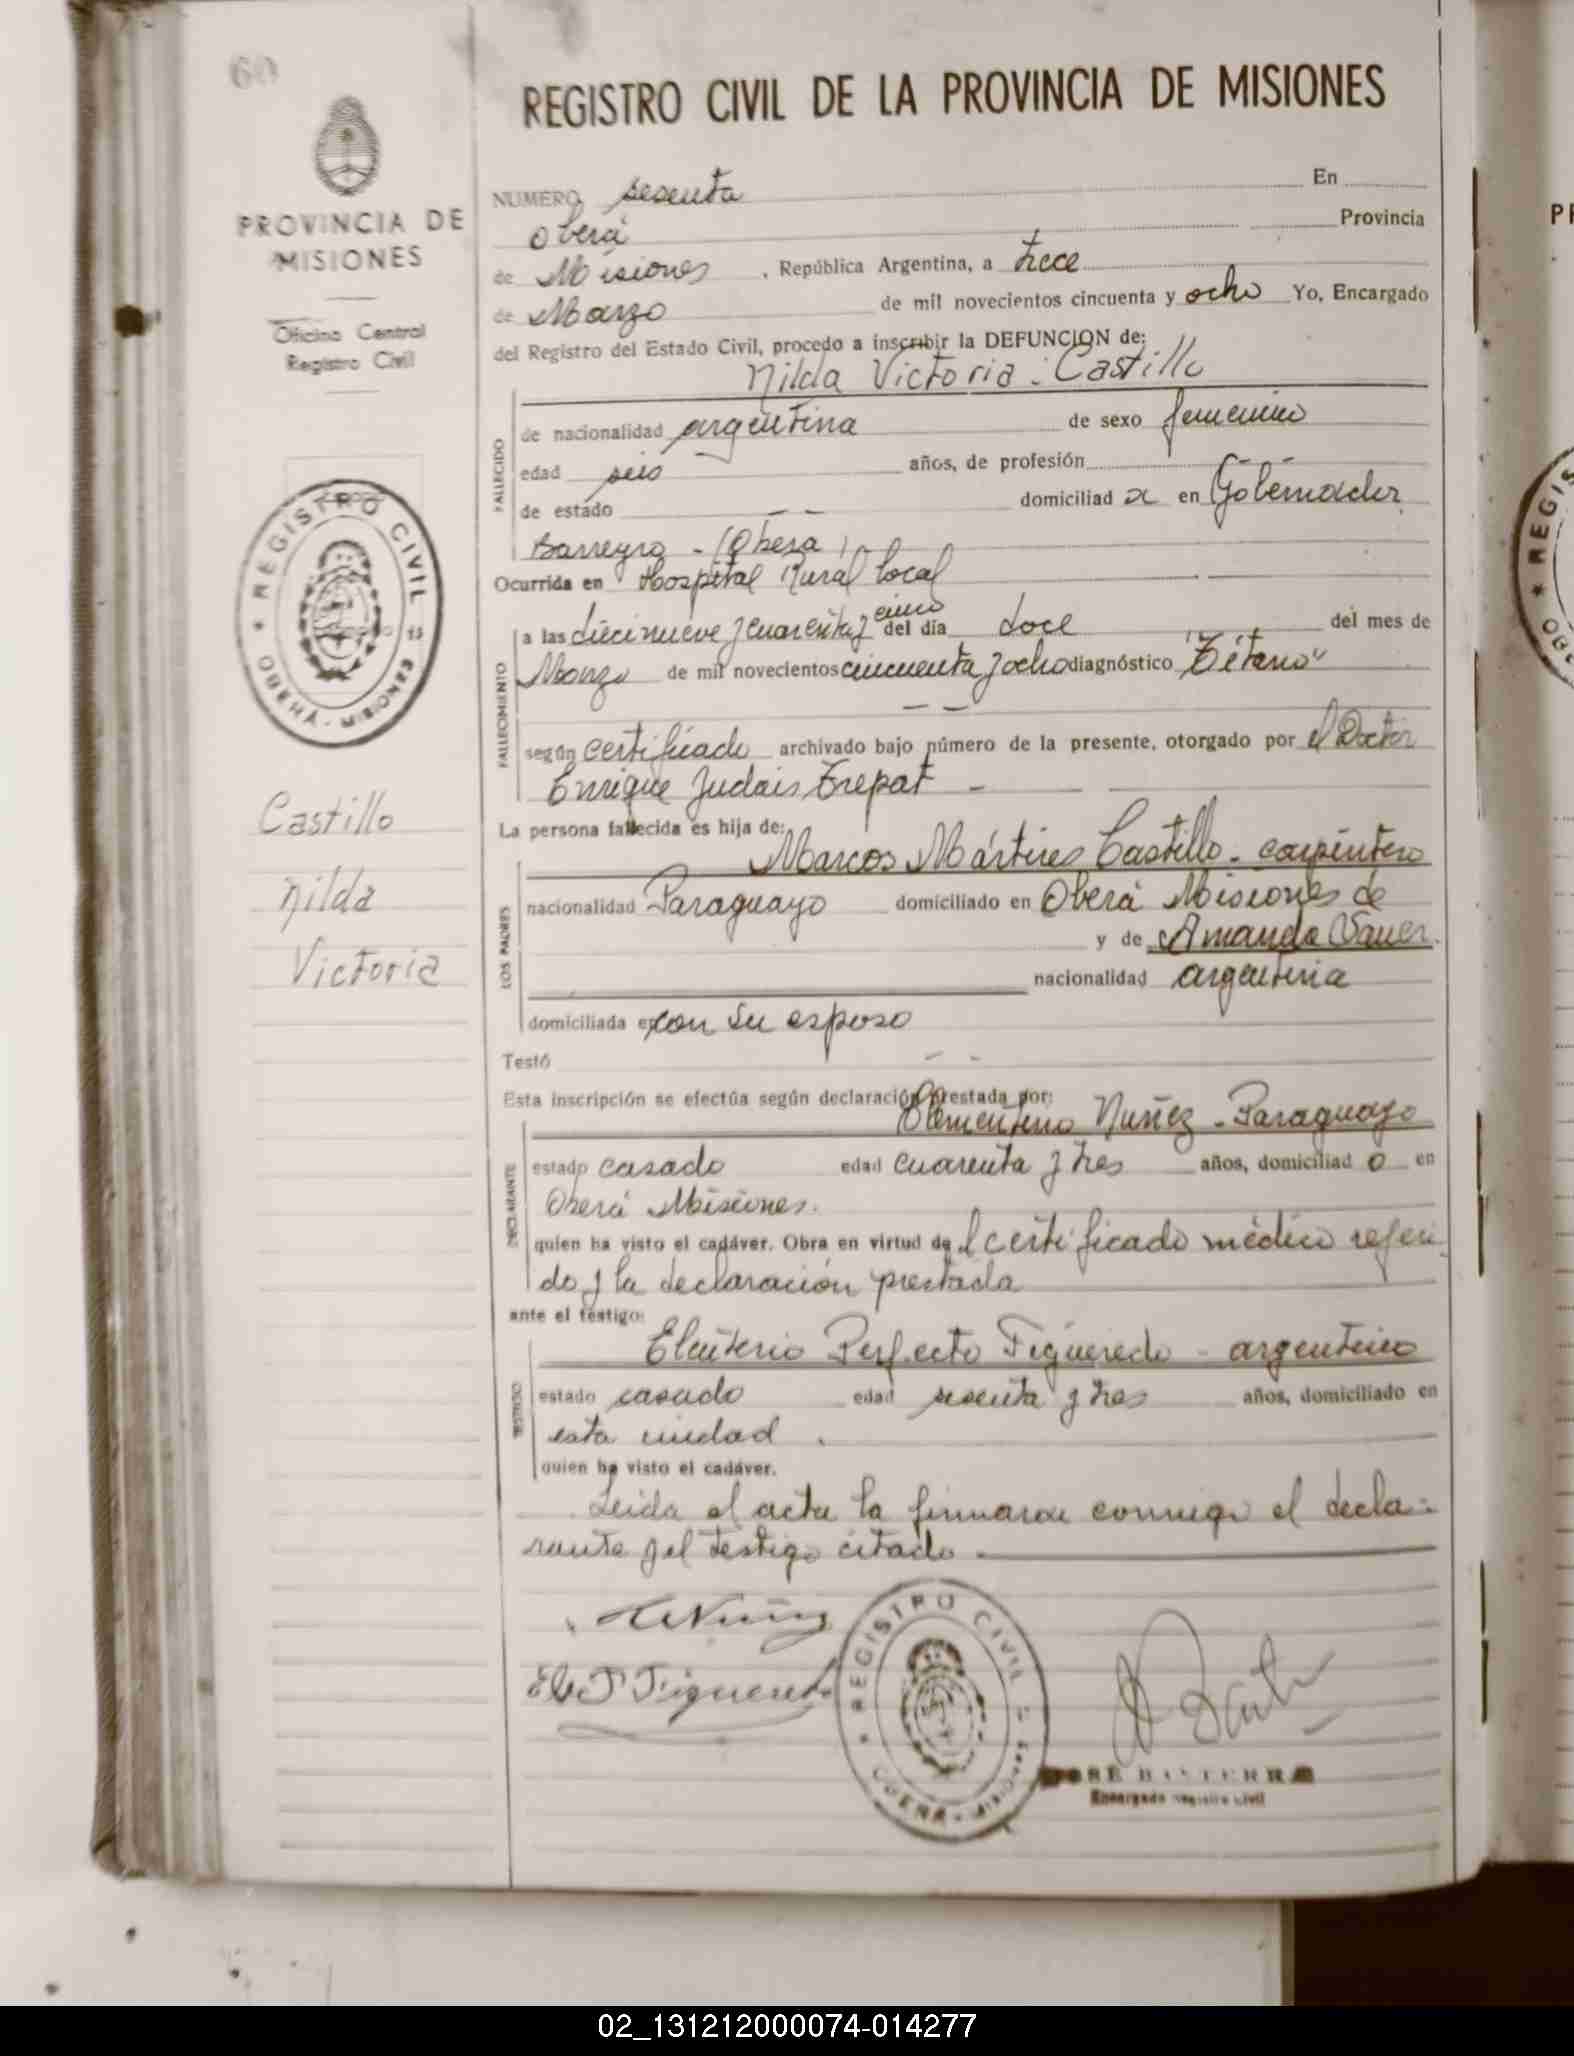 60
REGISTRO CIVIL DE LA PROVINCIA DE MISIONES
PROVINCIA DE
MISIONES
Oficina Central
Registro Civil
NUMERO sesenta En
Oberá Provincia
de Misiones, República Argentina, a trece
de Marzo de mil novecientos cincuenta y ocho Yo, Encargado
del Registro del Estado Civil, procedo a inscribir la DEFUNCION de:
Nilda Victoria - Castillo
FALLECIDO
de nacionalidad argentina de sexo femenino
edad seis años, de profesión - -
de estado - - domiciliad a en Gobernador
Barreyro - (Oberá)
Ocurrida en Hospital Rural local
FALLECIMIENTO
a las diecinueve y cuarenta y cinco del día doce del mes de
Marzo de mil novecientos cincuenta y ocho diagnóstico "Tétano"
- -
según certificado archivado bajo número de la presente, otorgado por el Doctor
Enrique Judais Trepat -
La persona fallecida es hija de:
LOS PADRES
Marcos Mártires Castillo - carpintero
nacionalidad Paraguayo domiciliado en Oberá Misiones de
y de Amanda
nacionalidad argentina
domiciliada en con su esposo
Testó - -
Esta inscripción se efectúa según declaración prestada por:
DECLARANTE
Clementino Nuñez - Paraguayo
estado casado edad cuarenta y tres años, domiciliad o en
Oberá Misiones.
quien ha visto el cadáver. Obra en virtud del certificado médico referi
do y la declaración prestada
ante el testigo:
TESTIGO
Eleuterio Perfecto Figueredo - argentino
estado casado edad sesenta y tres años, domiciliado en
esta ciudad.
quien ha visto el cadáver.
Leida el acta la firmaron conmigo el decla-
rante y el testigo citado
Castillo
Nilda
Victoria
REGISTRO CIVIL
OBERÁ - MISIONES
Nuñez
El P Figueredo
REGISTRO CIVIL
OBERÁ - MISIONES
JOSE BASTERRA
Encargado Registro Civil
REGIS
02_131212000074-014277